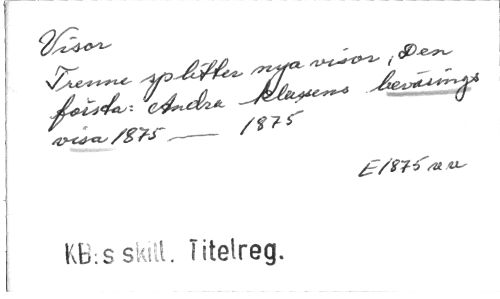 Visor
Trenne splitter nya visor, Den
första: Andra klassens bevärings
visa 1875 — 1875
E1875 uu
KB:s skill. Titelreg.